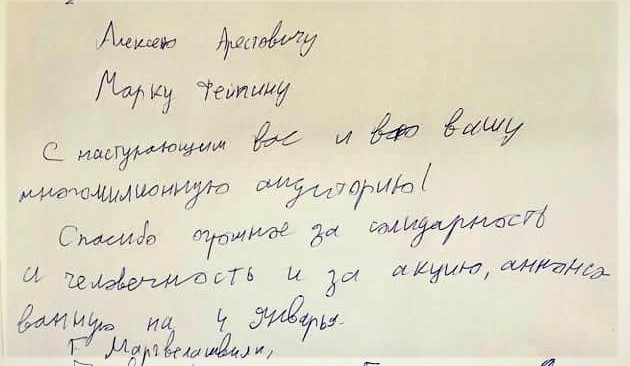 Алексею Арестовичу
Марку Фейгину
С наступающим вас и всю вашу
многомилионную аудиторию!
Спасибо огромное за солидарность
и человечность и за акцию, анонсо
ванную на 4 январья.
Г Маргвелашвили,